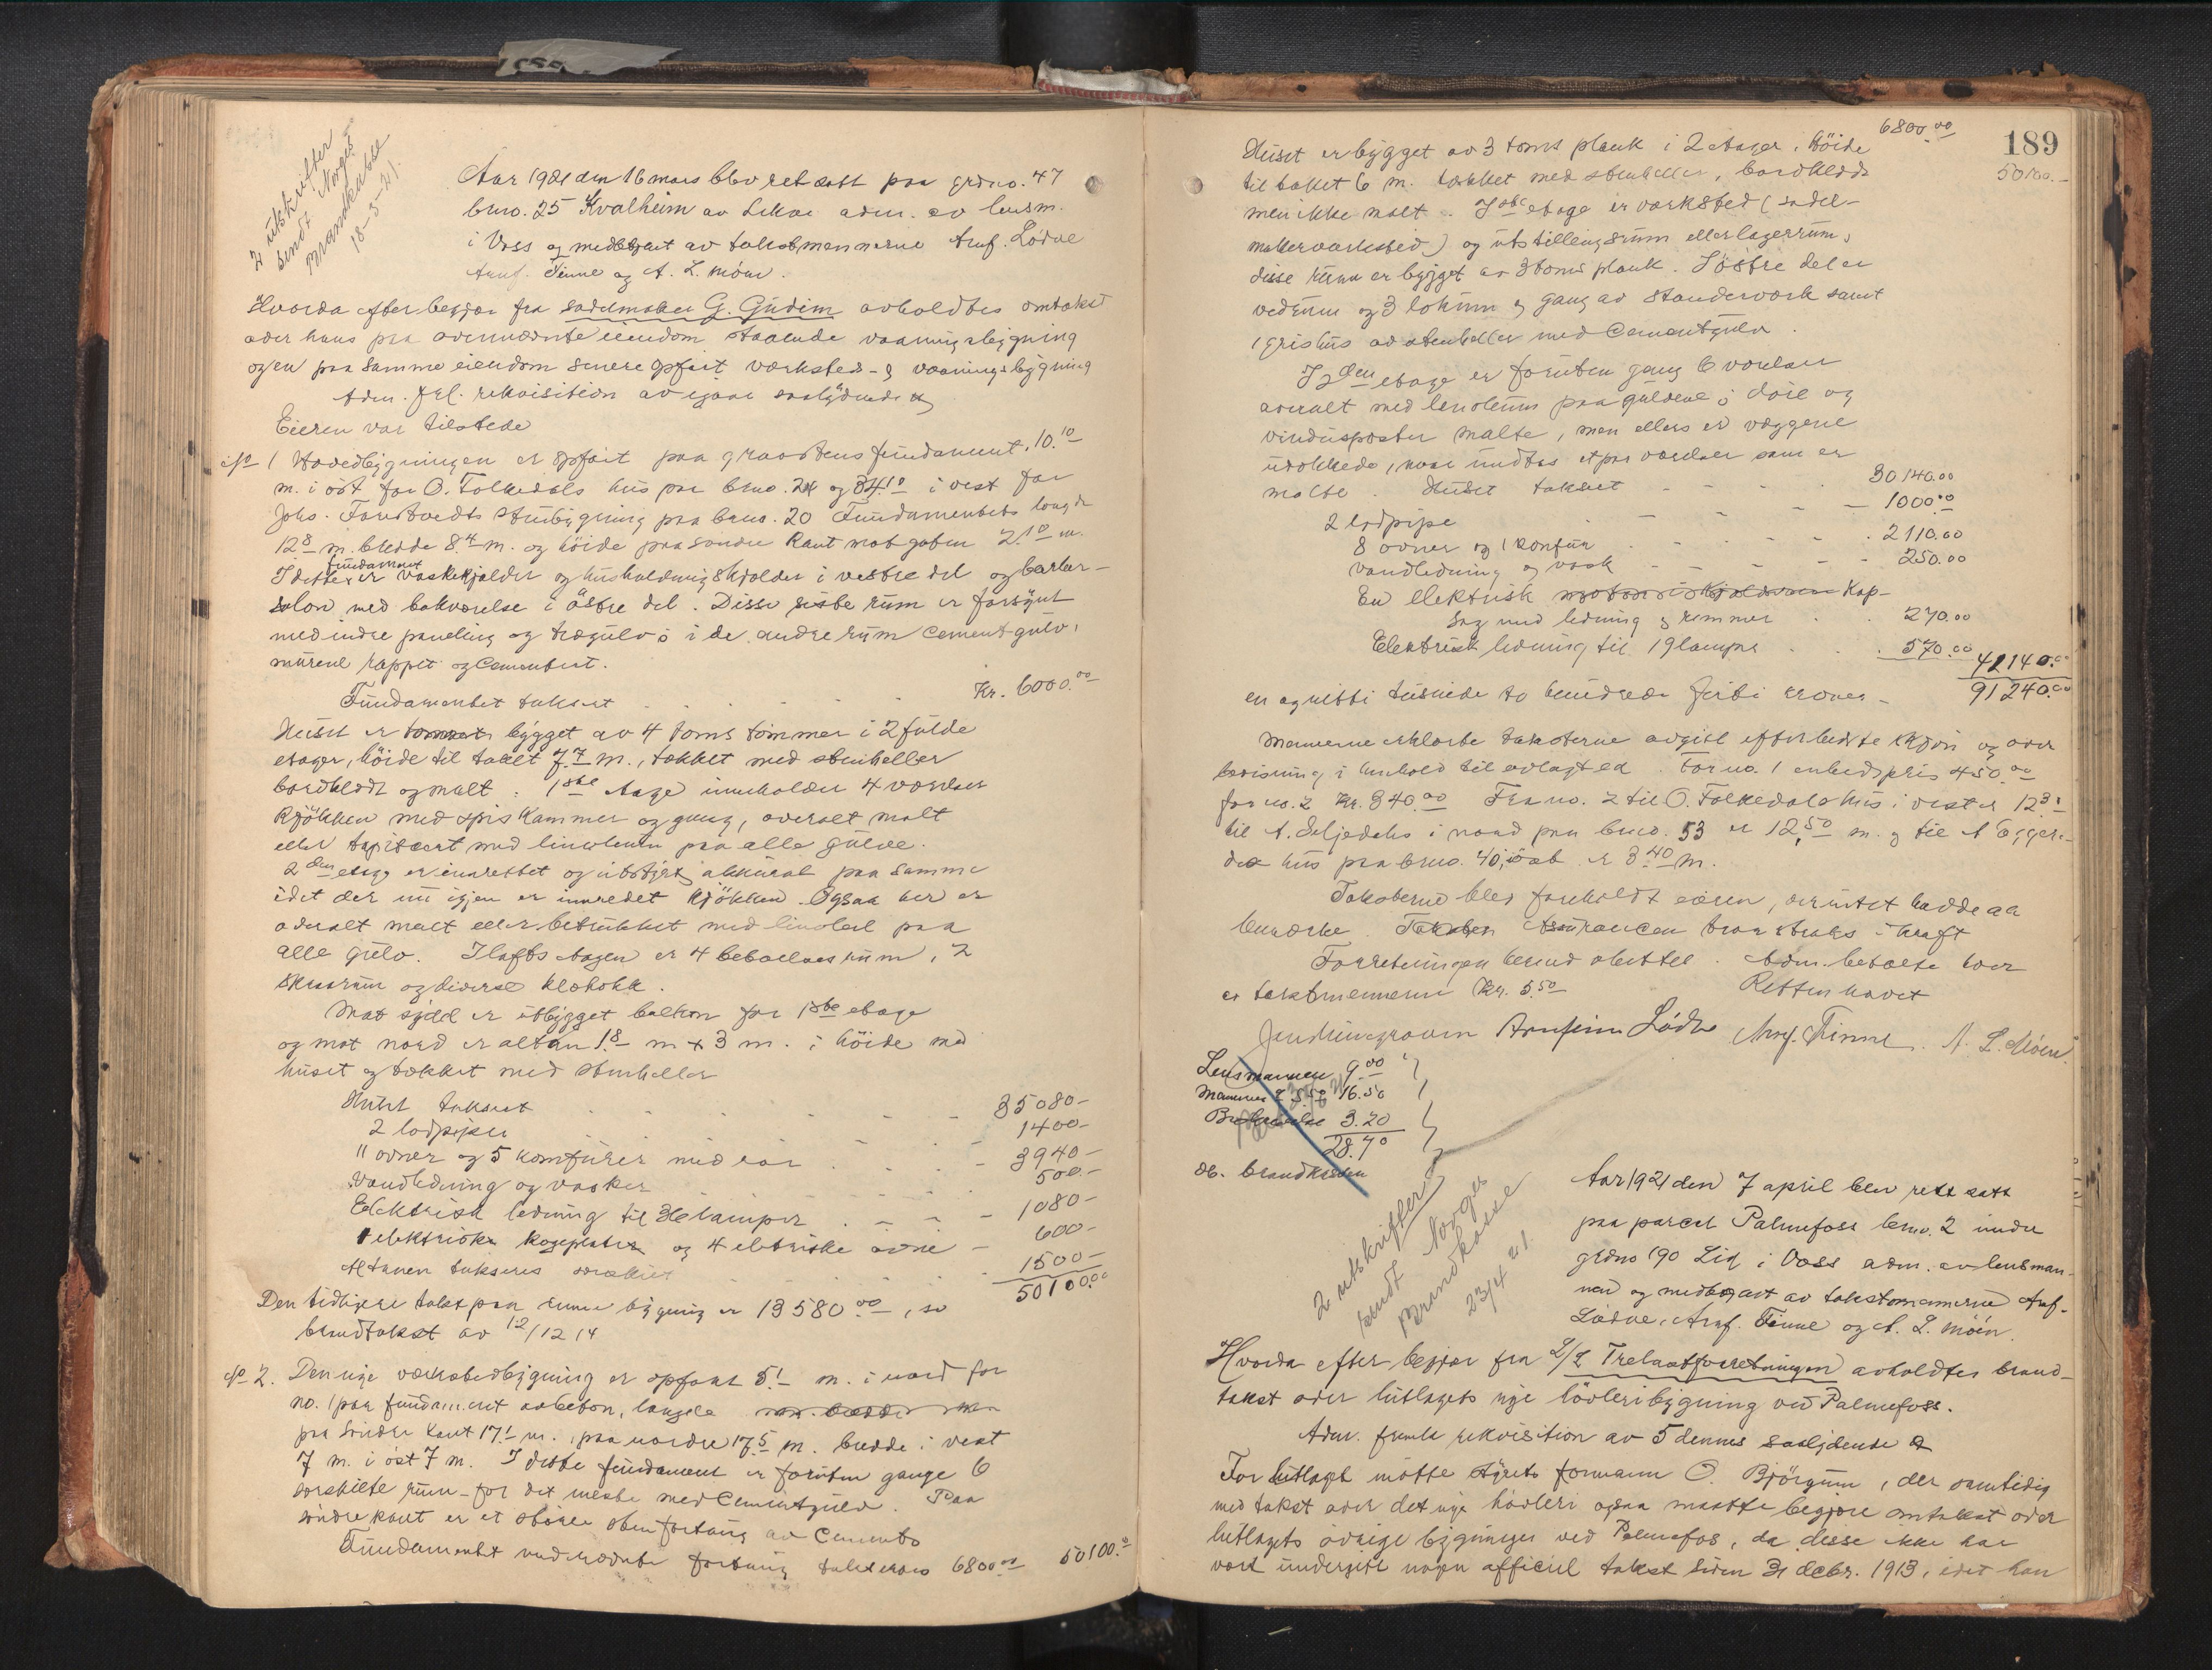 2 utskrifter
sendt Norges
Brandkasse
18-3-21.
Aar 1921 den 16 mars blev ret satt paa grdno. 47
brno. 25 Kvalheim av Lekve adm. av lensm.
i Voss og medbetjent av takstmennerne Arnf. Lödve
Arnf. Finne og A. L. Móen.
Hvorda efter begjær fra sadelmaker G. Gudim avholdtes omtakst
over hans paa ovennævnte eiendom staaende vaaningsbygning
og en paa samme eiendom senere opfört værksted- og vaaningsbygning
Adm. frl. rekvisition av igaar saalydende
Eieren var tilstede
No 1 Hovedbygningen er opfört paa graastens fundament. 10.10
m. i öst for O. Folkedals hus paa brno. 24 og 34.10 i vest for
Johs. Tvedts stuebygning paa brno. 20 Fundamentets længde
12.8 m. bredde 8.4 m. og höide paa söndre kant mot gaten 2.10 m.
I dette fundament er vaskekjelder og husholdningskjelder i vestre del og barber-
salon med bakværelse i östre del. Disse siste rum er forsynt
med indre paneling og trægulv; i de andre rum cementgulv,
murene rappet og cementert.
Fundamentet takseret . . . . Kr. 6000.00
Huset er bygget av 4 toms tömmer i 2 fulde
etager, höide til taket 7.7 m., tækket med stenheller
bordklædt og malt. 1ste etage inneholder 4 værelser
kjökken med spiskammer og gang, overalt malt
eller tapitsert med linoleum paa alle gulve.
2den etage er innrettet og utstyrt akkurat paa samme
idet der nu igjen er innredet kjökken. Ogsaa her er
overalt malt eller betrukket med linoleul paa
alle gulv. I loftsetagen er 4 beboelsesrum, 2
skuorum og diverse klæskott.
Mot syd er utbygget balkon for 1ste etage
og mot nord er altan 1.8 m x 3 m. i höide med
huset og tækket med stenheller
Huset takseret . . . 35080-
2 lodpiper . . . 1400-
11 ovner og 5 komfurer med rör . . . 3940-
Vandledning og vasker . . . 500.-
Elektrisk ledning til 36 lamper . . . 1080-
1 elektriske kogeplater og 4 eletriske ovne - 600-
Altanen takseres særskilt . . . 1500-
50100.00
Den tidligere takst paa denne bygning er 13580.00, se
brandtakst av 12/12 14
No 2. Den nye værkstedbygning er opfört 5.1 m. i nord for
no. 1 paa fundament av beton, længde
paa söndre kant 17.1 m. paa nordre 17.5 m. bredde i vest
7 m. i öst 7 m. I dette fundament er foruten gange 6
særskilte rum - for det meste med Cementgulv. Paa
söndre kant er et större stenfortaug av Cements
Fundamentet vedrörende fortaug takseres 6800.00 50100.00
189
6800.00
50100.-
Huset er bygget av 3 toms plank i 2 etager, höide
til taket 6 m. tækket med stenheller, bordklædt
men ikke malt. I 1ste etage er værksted (sadel-
makerværksted) og utstillingsrum eller lagerrum,
disse rum er bygget av 3 toms plank. I östre del er
vedrum og 3 lokum og gang av standerværk samt
1 grishus av stenheller med Cementgulv.
I 2den etage er foruten gang 6 værelser
overalt med lenoleum paa gulvene; döre og
vinduesposter malte, men ellers er væggene
uströkede, naar undtas et par værelser som er
malte. Huset takseret - - - 30140.00
2 lodpipe . . . 1000.00
8 ovner og 1 komfur . . . 2110.00
Vandledning og vask . . . 250.00
En elektrisk Kap-
sag med ledning og remmer . . 270.00
Elektrisk ledning til 19 lampe . . 570.00 41140.00
en og nitti tusinde to hundrede firti kroner - 91240.00
Mannerne erklærte taksterne avgitt efter bedste skjön og over
bevisning i henhold til avlagt ed. For no. 1 enhedspris 450.00
for no. 2 Kr. 340.00 Fra no. 2 til O. Folkedals hus i vest er 12.31
til A. Seljedals i nord paa brno. 53 er 12.50 m. og til A Eggere-
des hus paa brno. 40, öst er 3.40 m.
Taksterne blev foreholdt eieren, der intet hadde aa
bemerke. Assurancen traa straks i kraft
Forretningen dermed sluttet. Adm. betalte hver
av takstmennerne Kr. 5.50 Retten hævet
Arnfinn Lödve Arnf. Finne. A. L. Móen.
Lensmannen 9.00
Mannerne 3 5.50 16.50
3.20
28.70
db. brandkassen
2 utskrifter
sendt Norges
Brandkasse
23/4 21.
Aar 1921 den 7 april blev rett satt
paa parcel Palmefoss brno. 2 under
grdno 190 Lid i Voss adm. av lensman-
nen og medbetjent av takstmannerne Arnf.
Lödve, Arnf. Finne og A. L. Móen.
Hvorda efter begjær fra L/L Trelastforretningen avholdtes brand-
takst over lutlagets nye hövleribygning ved Palmefoss.
Adm. fremla rekvisition av 5 dennes saalydende
For lutlaget mötte styrets formann O. Björgum, der samtidig
med takst over det nye hövleri ogsaa maatte begjære omtakst over
lutlagets övrige bygninger ved Palmefos, da disse ikke har
vært undergitt nogen officiel takst siden 31 decbr. 1913, idet han